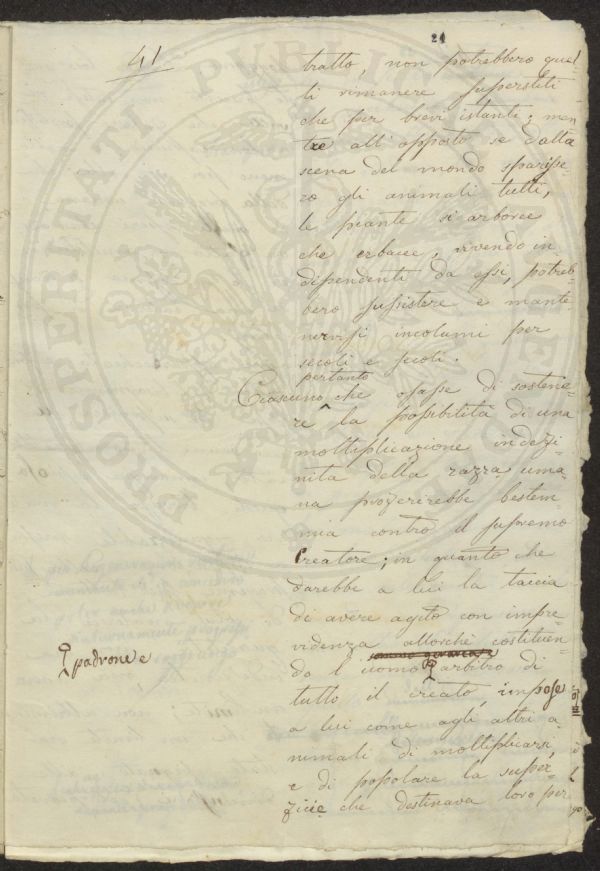 24
41
tratto, non potrebbero quel
li rimanere superstiti
che per brevi istanti; men
tre all' opposto se dalla
scena del mondo sparisse
ro gli animali tutti,
le piante si arboree
che erbacee, vivendo in
dipendenti da essi, potreb
bero sussistere e mante
nervisi incolumi per
secoli e secoli.
pertanto
Ciascuno che osasse di sostene
re la possibilità di una
moltiplicazione indefi
nita della razza uma
na proferirebbe bestem
mia contro il supremo
Creatore; in quanto che
darebbe a Lui la taccia
di avere agito con impre
videnza allorchè costituen
do l' uomo arbitro di
padrone e
tutto il creato, impose
a lui come agli altri a
nimali di moltiplicarsi,
e di popolare la super
ficie che destinava loro per
PROSPERITATI PUBLICAE